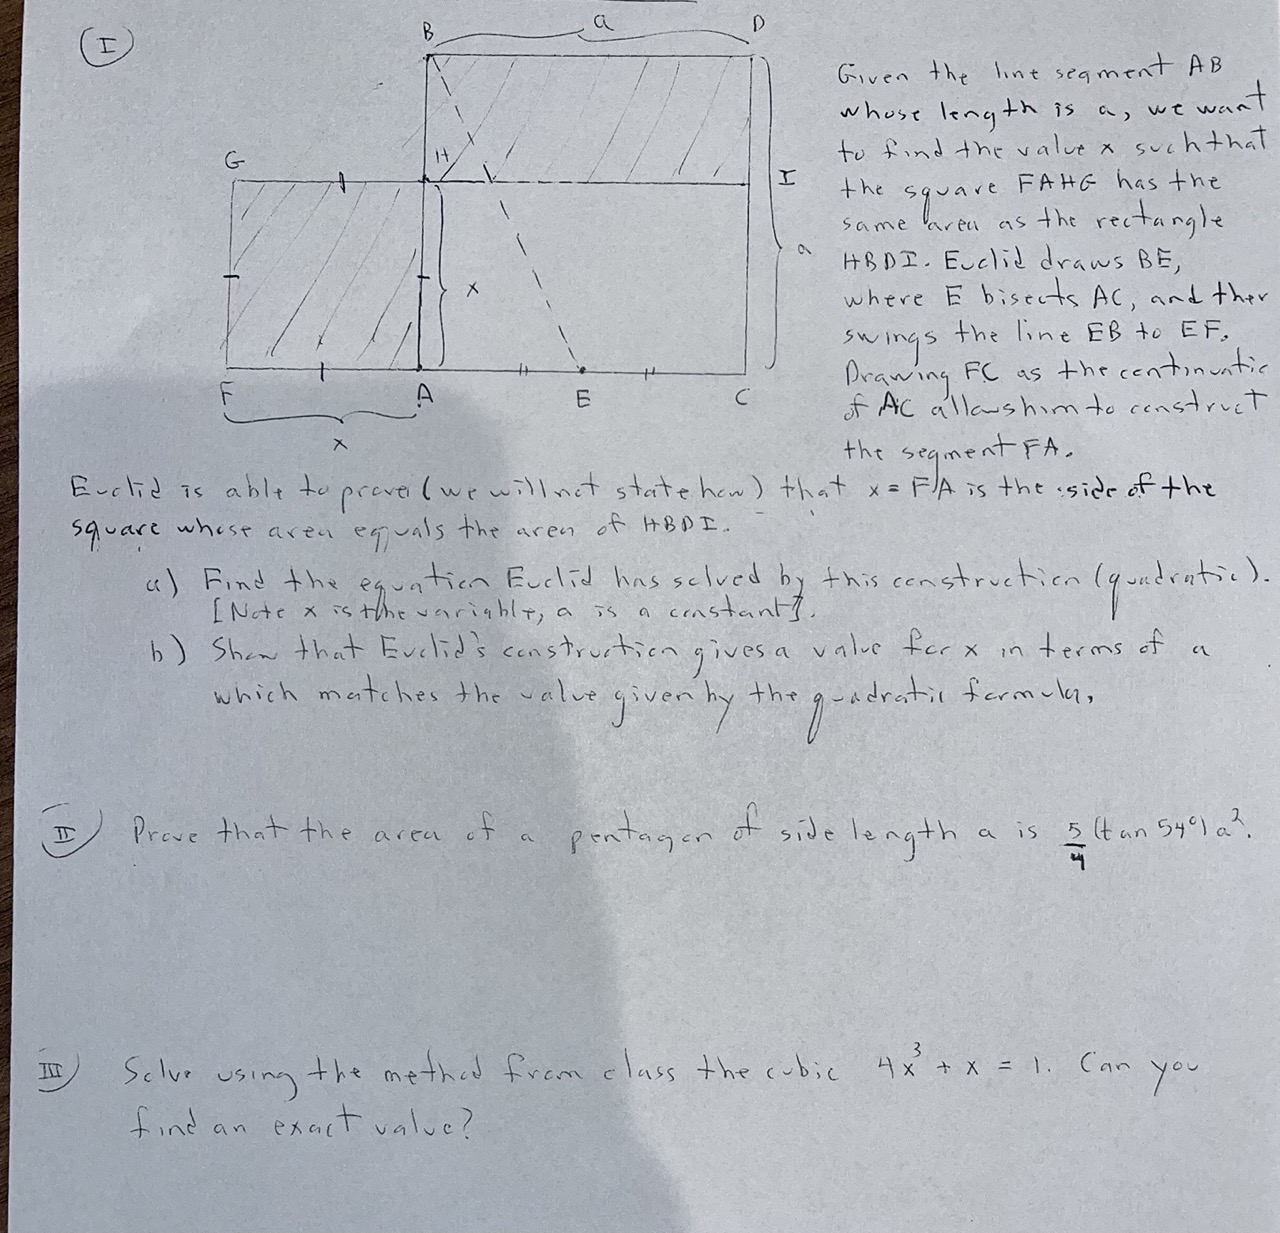 I
B a D
G H I
a
x
F A E C
x
Given the line segment AB
whose length is a, we want
to find the value x such that
the square FAHG has the
same area as the rectangle
HBDI. Euclid draws BE,
where E bisects AC, and then
swings the line EB to EF.
Drawing FC as the continuatic
of AC allows him to construct
the segment FA.
Euclid is able to prove (we will not state how) that x = FA is the side of the
square whose area equals the area of HBDI.
a) Find the equation Euclid has solved by this construction (quadratic).
[Note x is the variable, a is a constant].
b) Show that Euclid's construction gives a value for x in terms of a
which matches the value given by the quadratic formula,
II Prove that the area of a pentagon of side length a is 5/4 (tan 54°) a².
III Solve using the method from class the cubic 4x³ + x = 1. Can you
find an exact value?